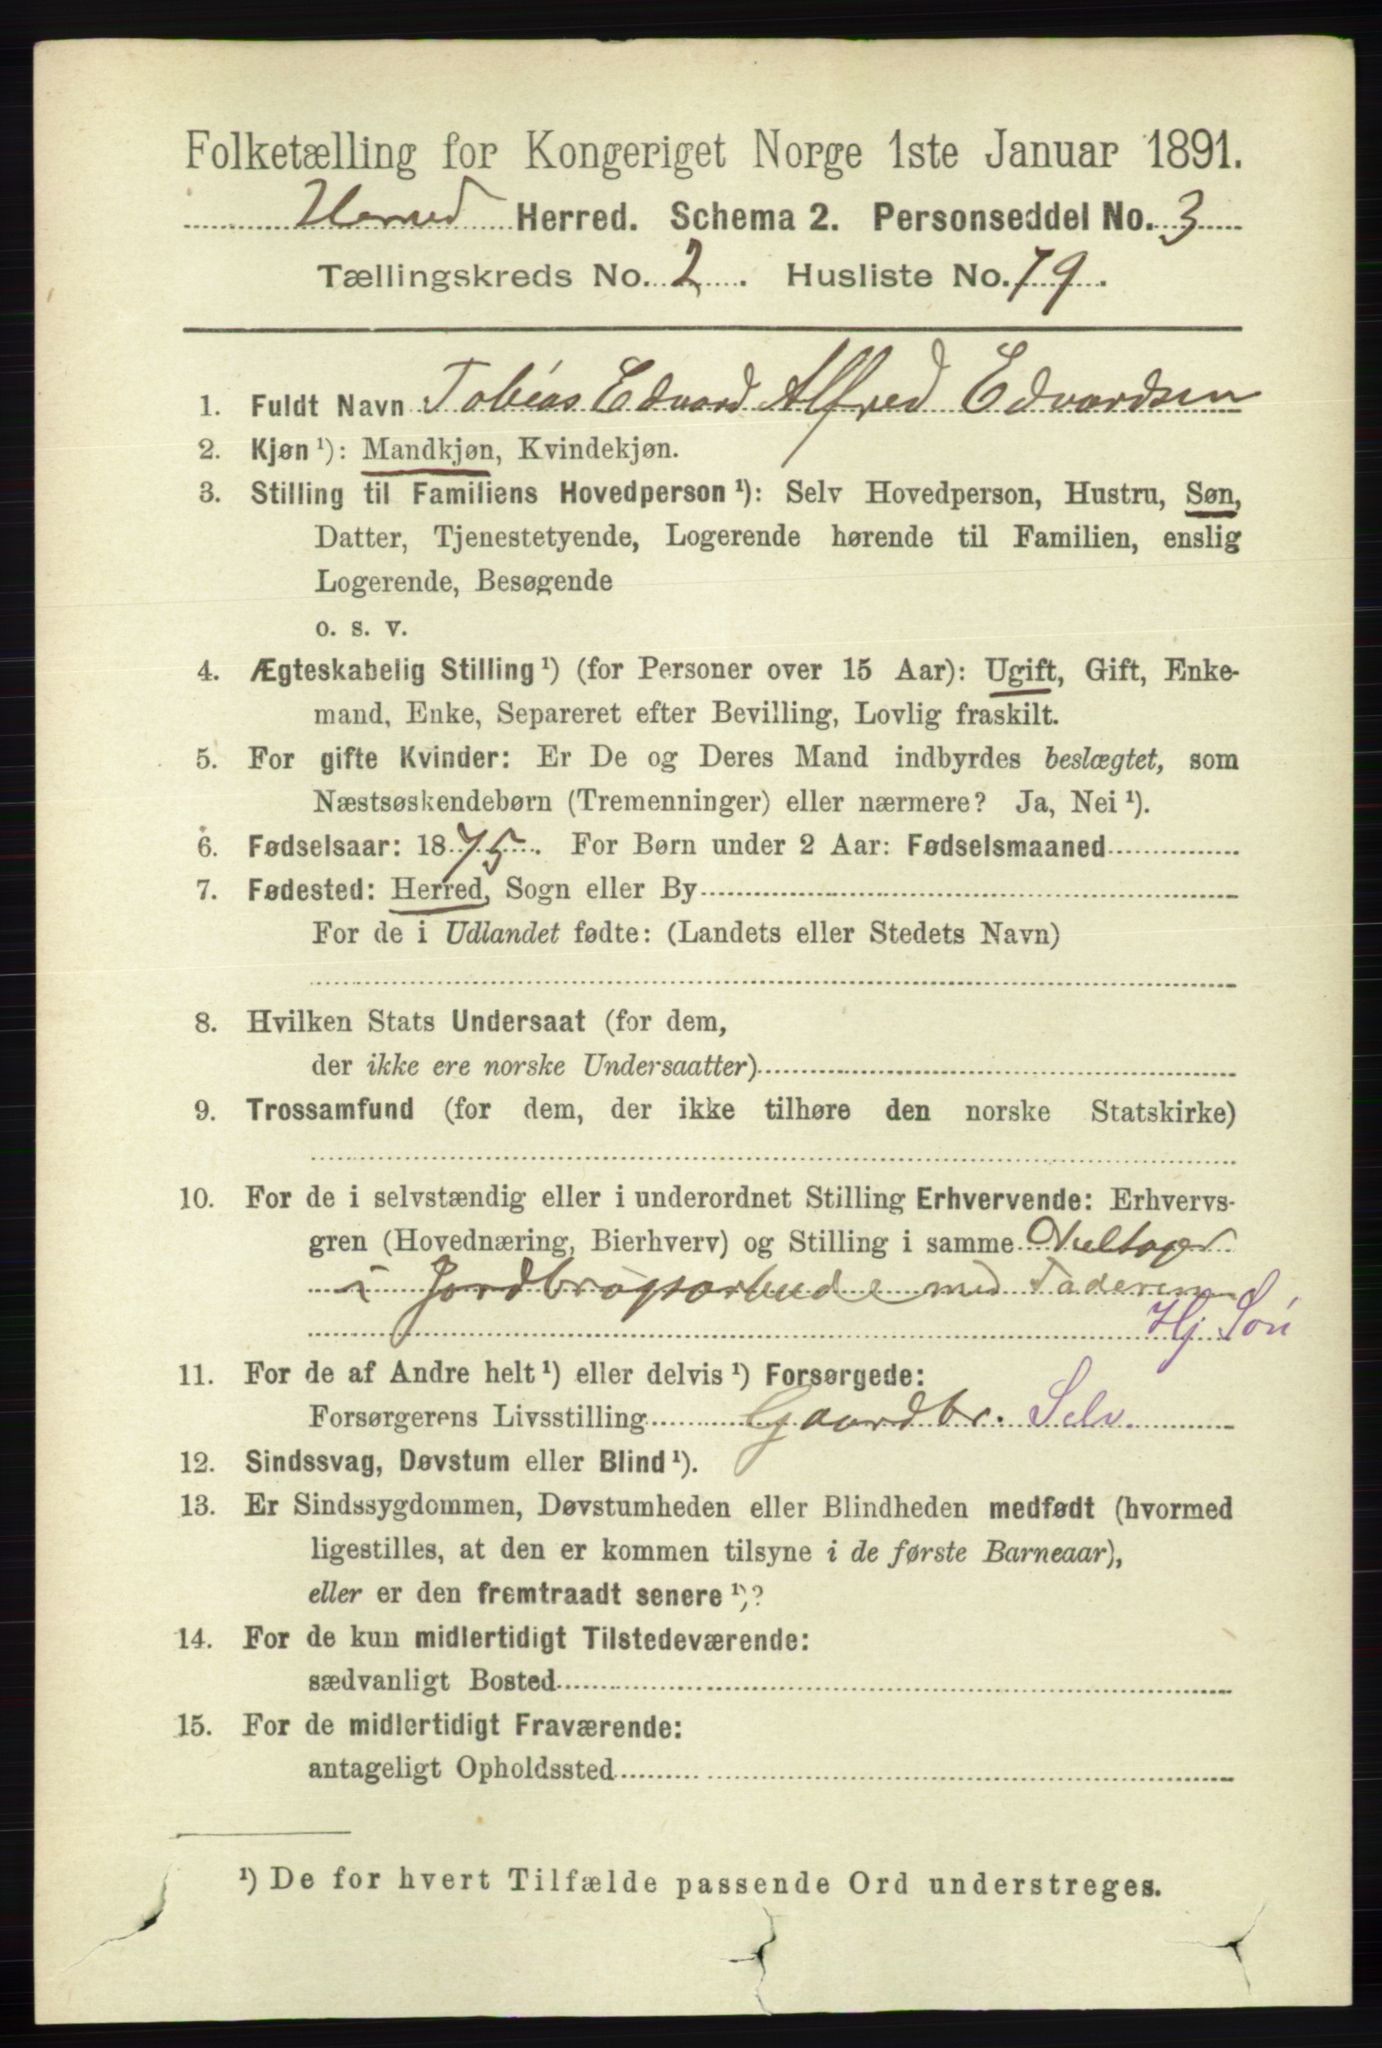 Folketælling for Kongeriget Norge 1ste Januar 1891.
Herred. Schema 2. Personseddel No. 3
Tællingskreds No. 2. Husliste No. 79.
1. Fuldt Navn Tobias Edvard Alfred Edvardsen
2. Kjøn ¹): Mandkjøn, Kvindekjøn.
3. Stilling til Familiens Hovedperson ¹): Selv Hovedperson, Hustru, Søn,
Datter, Tjenestetyende, Logerende hørende til Familien, enslig
Logerende, Besøgende
o. s. v.
4. Ægteskabelig Stilling ¹) (for Personer over 15 Aar): Ugift, Gift, Enke-
mand, Enke, Separeret efter Bevilling, Lovlig fraskilt.
5. For gifte Kvinder: Er De og Deres Mand indbyrdes beslægtet, som
Næstsøskendebørn (Tremenninger) eller nærmere? Ja, Nei ¹).
6. Fødselsaar: 1875. For Børn under 2 Aar: Fødselsmaaned
7. Fødested: Herred, Sogn eller By
For de i Udlandet fødte: (Landets eller Stedets Navn)
8. Hvilken Stats Undersaat (for dem,
der ikke ere norske Undersaatter)
9. Trossamfund (for dem, der ikke tilhøre den norske Statskirke)
10. For de i selvstændig eller i underordnet Stilling Erhvervende: Erhvervs-
gren (Hovednæring, Bierhverv) og Stilling i samme Deltager
i Jordbrugsarbeide med Faderen
Hj Søn
11. For de af Andre helt ¹) eller delvis ¹) Forsørgede:
Forsørgerens Livsstilling Gaardbr. Selv.
12. Sindssvag, Døvstum eller Blind ¹).
13. Er Sindssygdommen, Døvstumheden eller Blindheden medfødt (hvormed
ligestilles, at den er kommen tilsyne i de første Barneaar),
eller er den fremtraadt senere ¹)?
14. For de kun midlertidigt Tilstedeværende:
sædvanligt Bosted
15. For de midlertidigt Fraværende:
antageligt Opholdssted
¹) De for hvert Tilfælde passende Ord understreges.